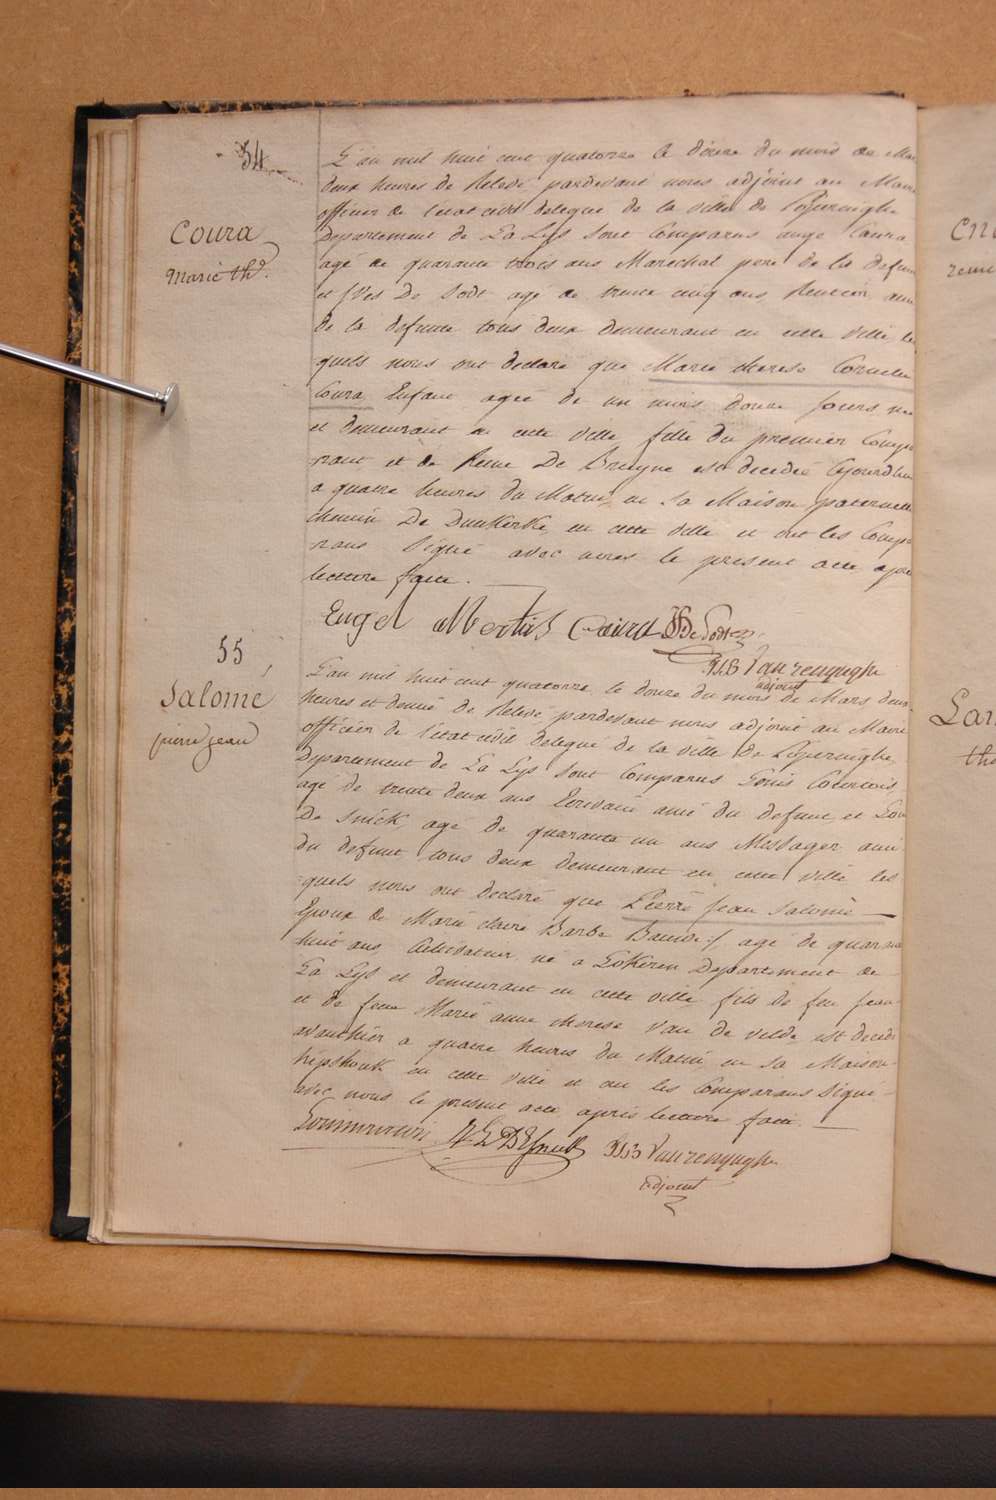 54
Coura
Marie thé.
L'an mil huit cent quatorze le douze du mois de Mar
deux heures de Relevé pardevant nous adjoint au Maire
officier de l'état civil delegué de la ville de Poperinghe
Departement de La Lys sont Comparus ange Coura
agé de quarante trois ans Marechal pere de la defun
et Yves De Sodt agé de trente cinq ans Rentier ami
de la defunte tous deux demeurant en cette ville le
quels nous ont declaré que Marie therese Cornelie
Coura Enfant agée de un mois douze jours née
et demeurant en cette ville fille du premier Compa
rant et de Reine De Bruyne est decedée
a quatre heures du Matin en sa Maison paternelle
chemin De Dunkerke en cette ville et ont les Compa
rans Signé avec nous le present acte apre
lecture faite.
Engel Coura De Sodt
Vanrenynghe
adjoint
55
Salomé
pierre jean
L'an mil huit cent quatorze le douze du mois de Mars deux
heures et demie de Relevé pardevant nous adjoint au Maire
officier de l'état civil delegué de la ville de Poperinghe
Departement de La Lys sont Comparus Courtois
agé de trente deux ans Ecrivain ami du defunt et
De Snick, agé de quarante un ans Messager ami
du defunt tous deux demeurant en cette ville les
quels nous ont declaré que Pierre Jean Salomé
Epoux de Marie claire Barbe agé de quarante
huit ans Cultivateur né a Departement de
La Lys et demeurant en cette ville fils de feu Jean
et de feue Marie anne therese Van de velde est decedé
avanthier a quatre heures du Matin en sa Maison
en cette ville et ont les Comparans Signé
avec nous le present acte après lecture faite.
Vanrenynghe
adjoint